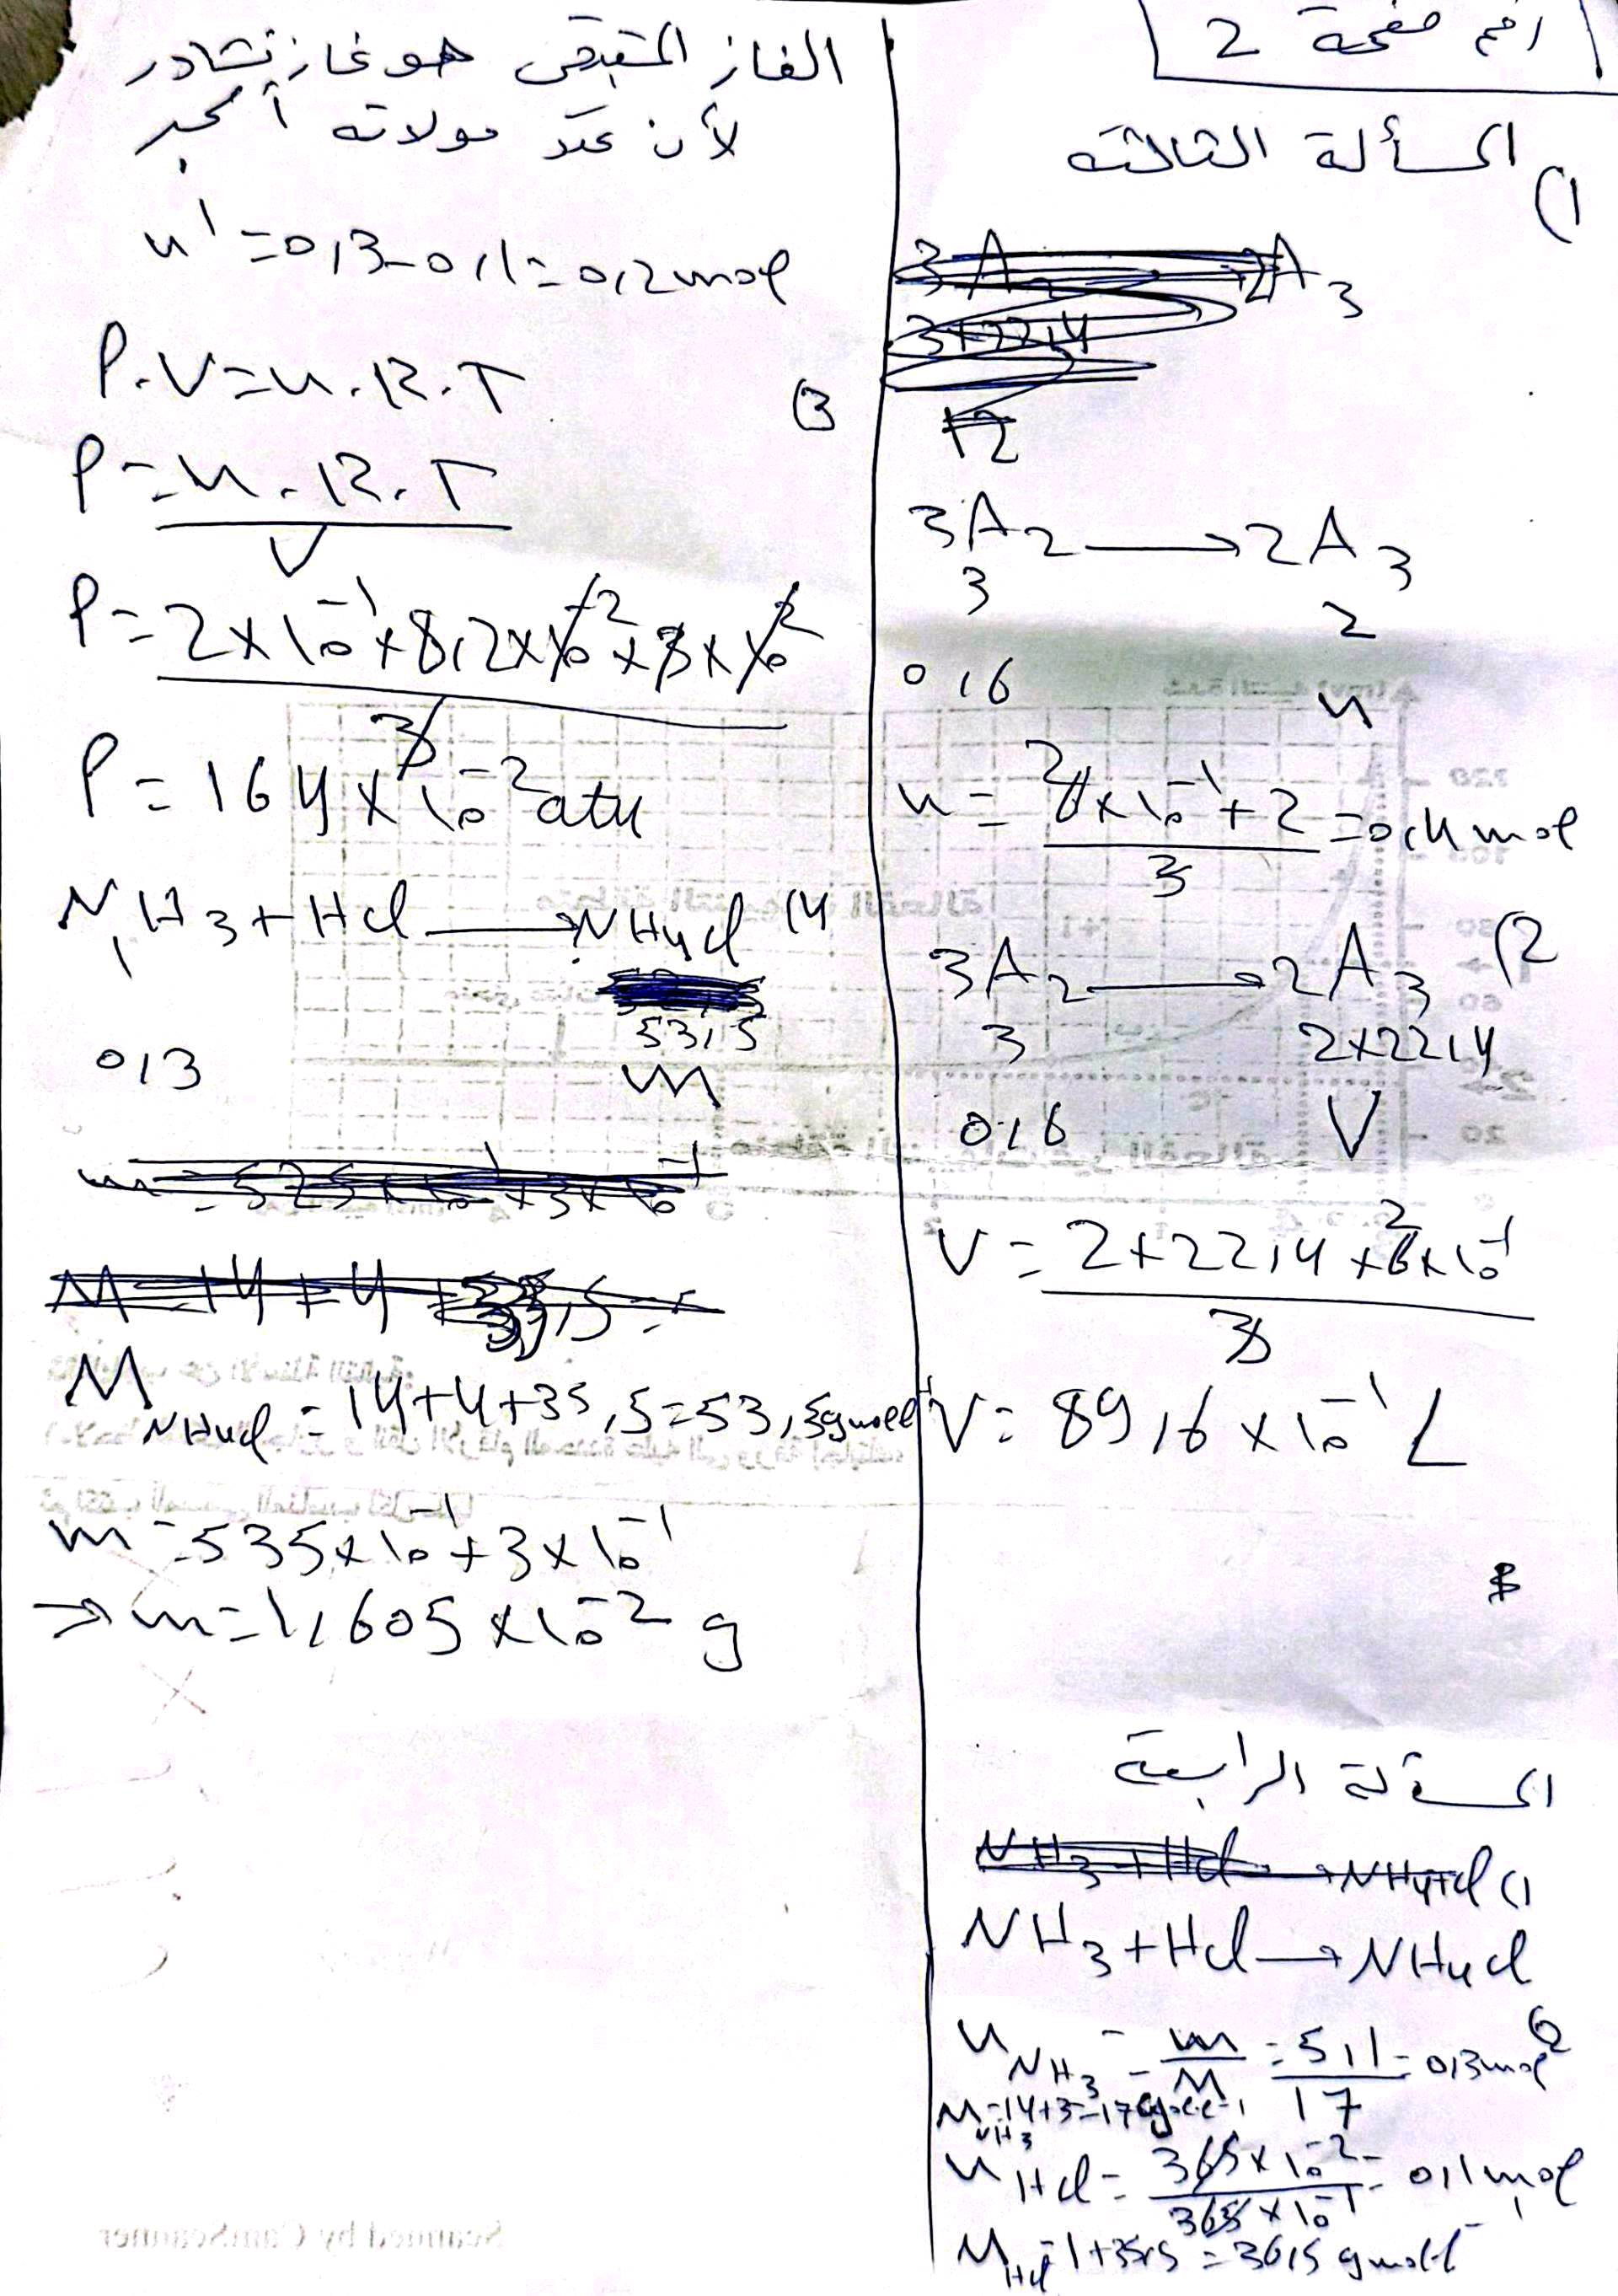 رقم صفحة 2
المسألة الثالثه
(1
3A2 2A3
3×22,4
12
3A2 → 2A3
3 2
0,6 n
n = 6×10^-1 × 2 / 3 = 0,4 mol
3A2 → 2A3 (2
3 2×22,4
0,6 V
V = 2×22,4×6×10^-1 / 3
V = 89,6×10^-1 L
المسئلة الرابعة
NH3 + HCl → NH4Cl (1
NH3 + HCl → NH4Cl
n NH3 = m/M = 5,1/17 = 0,3 mol (2
M NH3 = 14+3 = 17 g mol^-1
n HCl = 365×10^-2 / 365×10^-1 = 0,1 mol
M HCl = 1+35,5 = 36,5 g mol^-1
الغاز المتبقي هو غاز نشادر
لأن عدد مولاته أكبر
n' = 0,3 - 0,1 = 0,2 mol
P.V = n.R.T (3
P = n.R.T / V
P = 2×10^-1×8,2×10^-2×3×10^2 / 3
P = 164×10^-2 atm
NH3 + HCl → NH4Cl (4
1 53,5
0,3 m
m = 525×10^-1×3×10^-1
M = 14+4+35,5 =
M NH4Cl = 14+4+35,5 = 53,5 g mol^-1
m = 535×10^-1×3×10^-1
→ m = 1,605×10^-2 g
Scanned by CamScanner